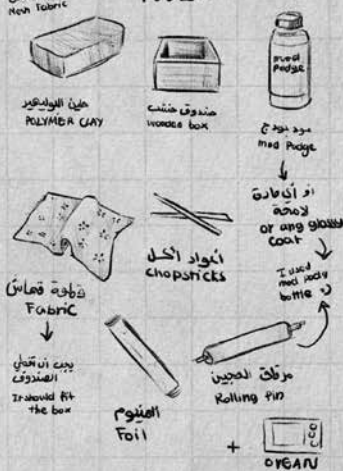 Mesh Fabric
طين البوليمير
POLYMER CLAY
صندوق خشب
wooden box
mod
podge
مود بودج
mod Podge
او أي مادة
لامعة
or any glossy
coat
I used
mod pody
bottle
قطعة قماش
Fabric
أعواد اكل
Chopsticks
يجب ان تغطي
الصندوق
It should fit
the box
المنيوم
Foil
مرقاق العجين
Rolling Pin
+
OVEAN